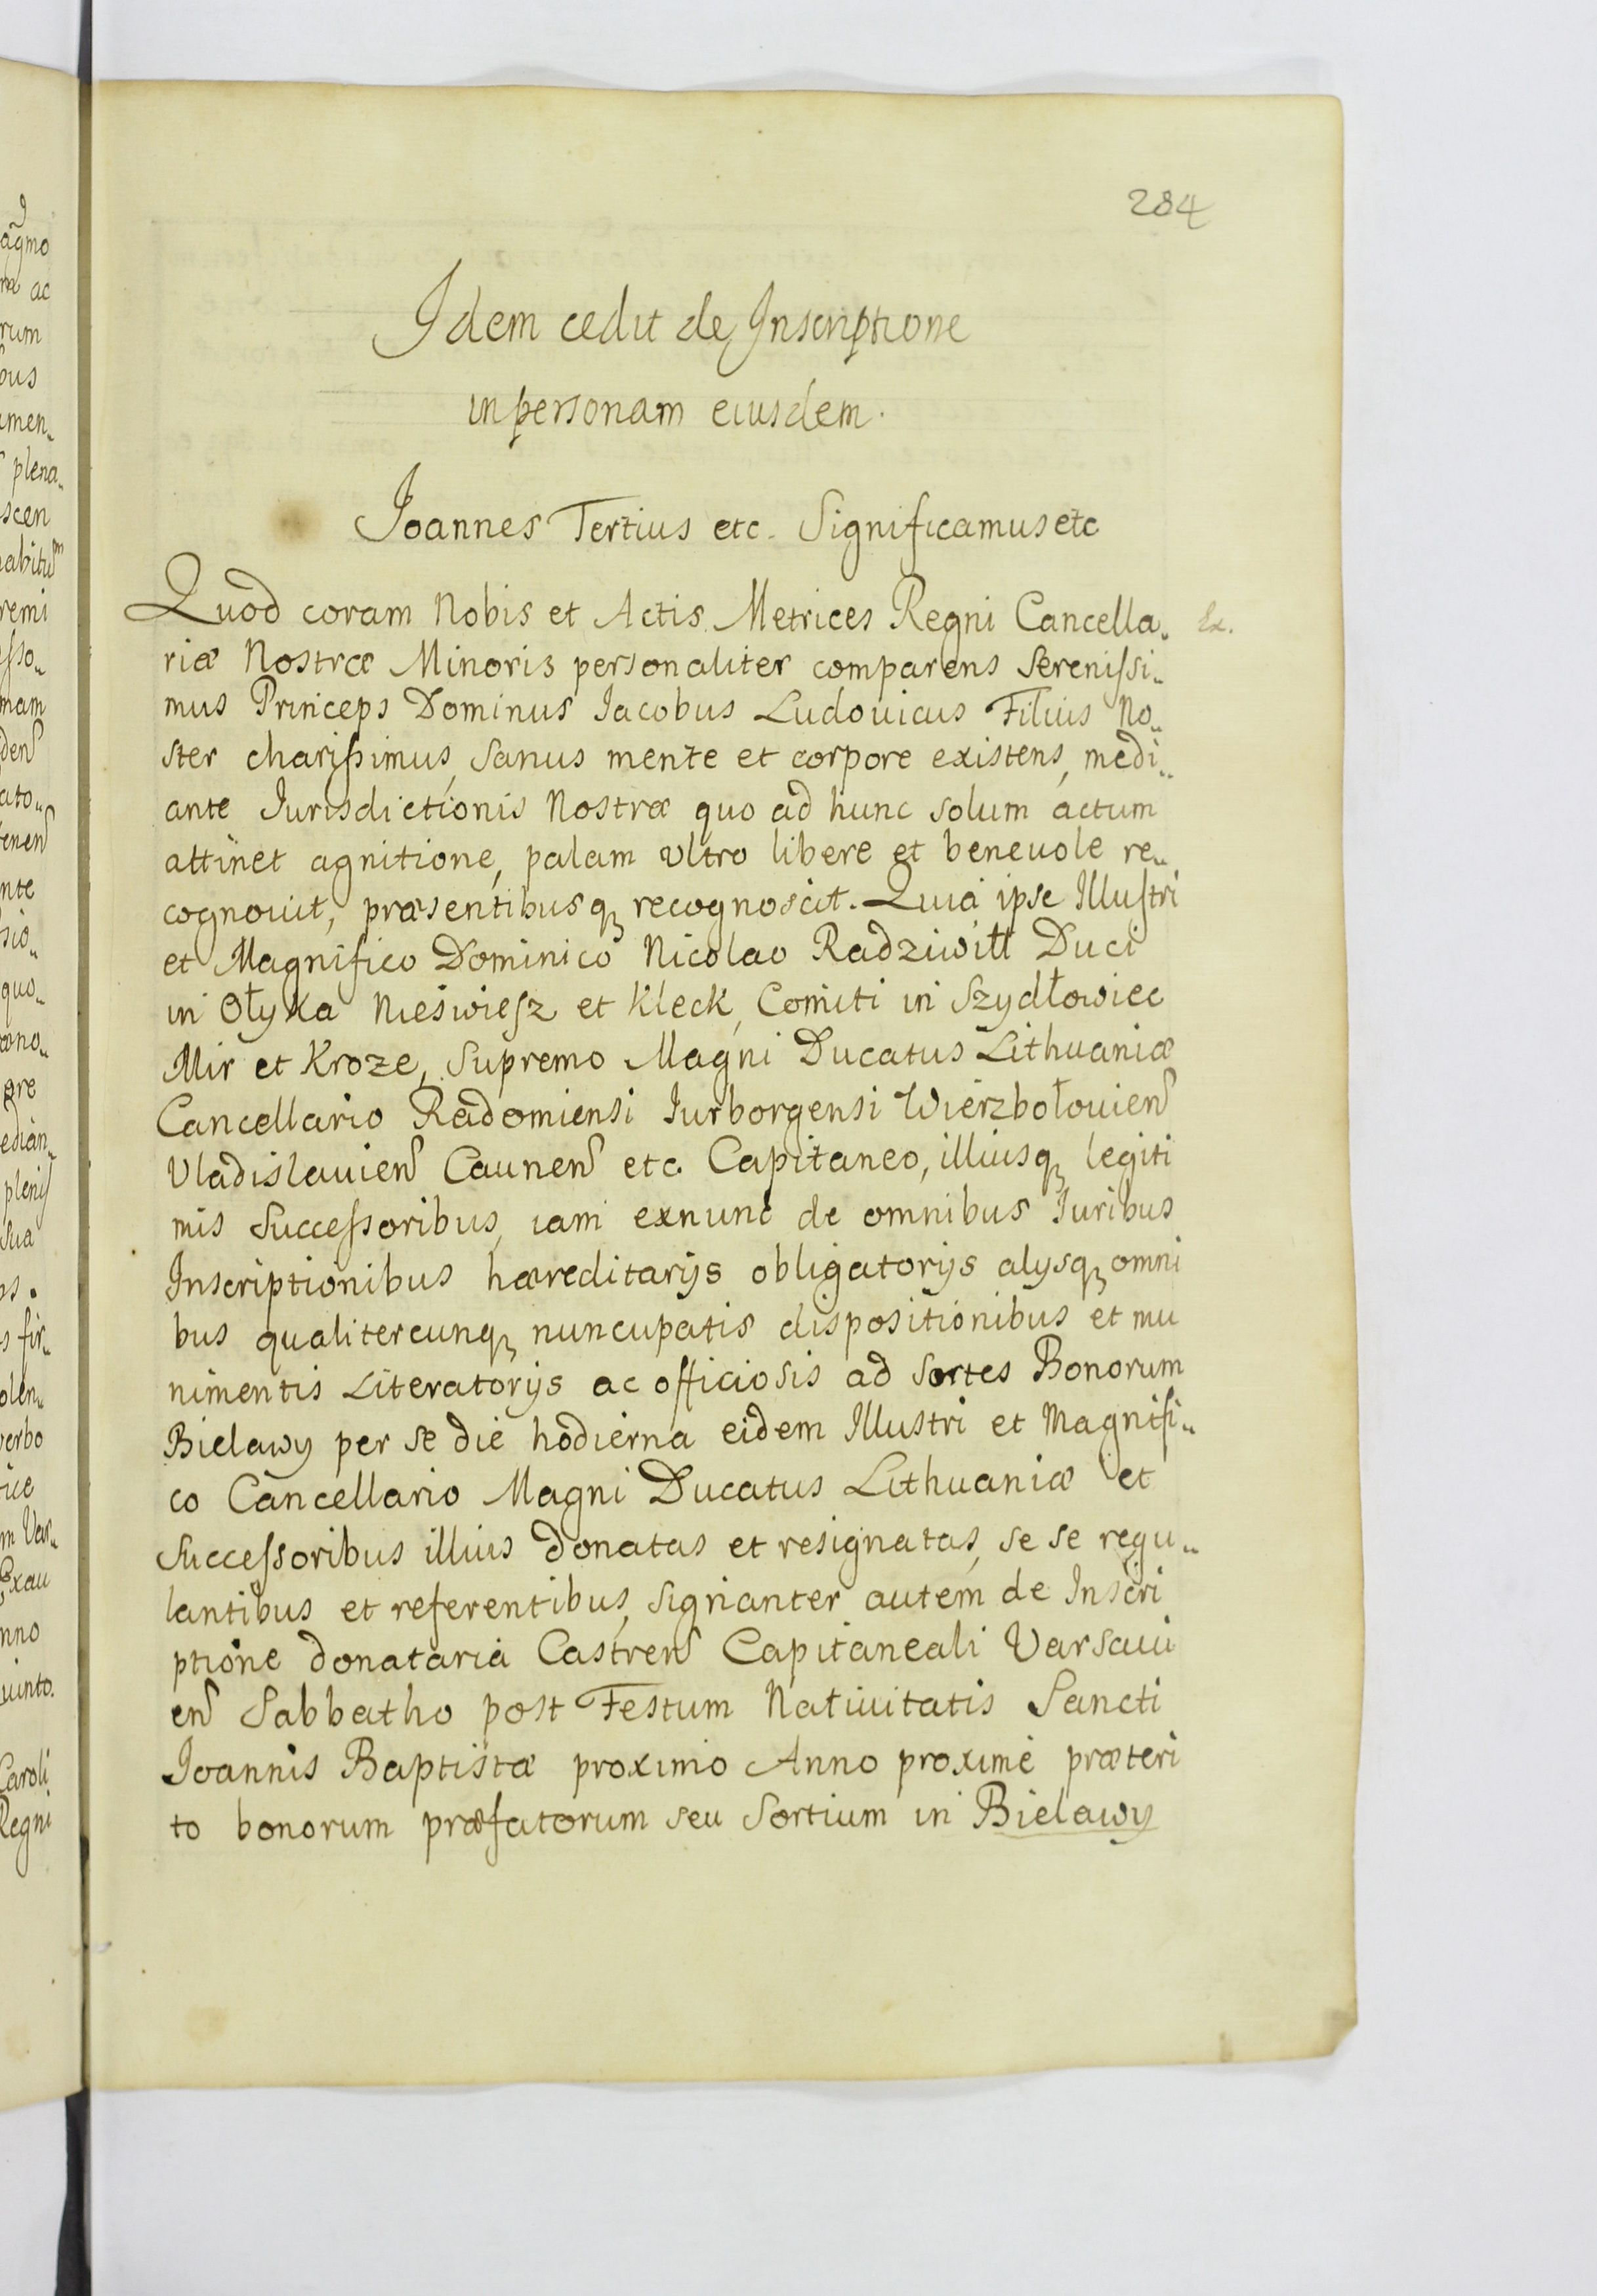 284
Idem cedit de Inscriptione
in personam eiusdem.
Joannes Tertius etc. Significamus etc
Quod coram Nobis et Actis Metrices Regni Cancella„
riæ Nostræ Minoris personaliter comparens Serenissi„
mus Princeps Dominus Iacobus Ludouicus Filius No„
ster charissimus, sanus mente et corpore existens, medi„
ante Iurisdictionis Nostræ quo ad hunc solum actum
attinet agnitione, palam vltro libere et beneuole re„
cognouit, præsentibusq recognoscit. Quia ipse Illustri
et Magnifico Dominico Nicolao Radziwiłł Duci
in Ołyka Nieświesz et Kleck, Comiti in Szydłowiec
Mir et Kroze, Supremo Magni Ducatus Lithuaniæ
Cancellario Radomiensi Iurborgensi Wierzbołouien
Vladislauien Caunen etc. Capitaneo, illiusq legiti
mis Successoribus, iam exnunc de omnibus Iuribus
Inscriptionibus hæreditarijs obligatorijs alijsq omni
bus qualitercunq nuncupatis dispositionibus et mu
nimentis Literatorijs ac officiosis ad Sortes Bonorum
Bielawy per se die hodierna eidem Illustri et Magnifi„
co Cancellario Magni Ducatus Lithuaniæ et
Successoribus illius donatas et resignatas, se se regu„
lantibus et referentibus, signanter autem de Inscri
ptione donataria Castren Capitaneali Varsaui
en Sabbatho post Festum Natiuitatis Sancti
Joannis Baptistæ proximo Anno proximè præteri
to bonorum præfatorum seu Sortium in Bielawy